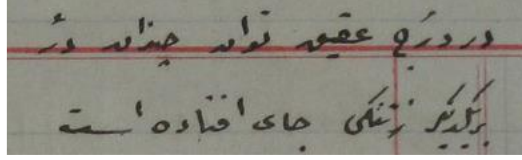 در درج عقیق تو از چندان در
بریکدیگر ز تنگی جای افتاده است